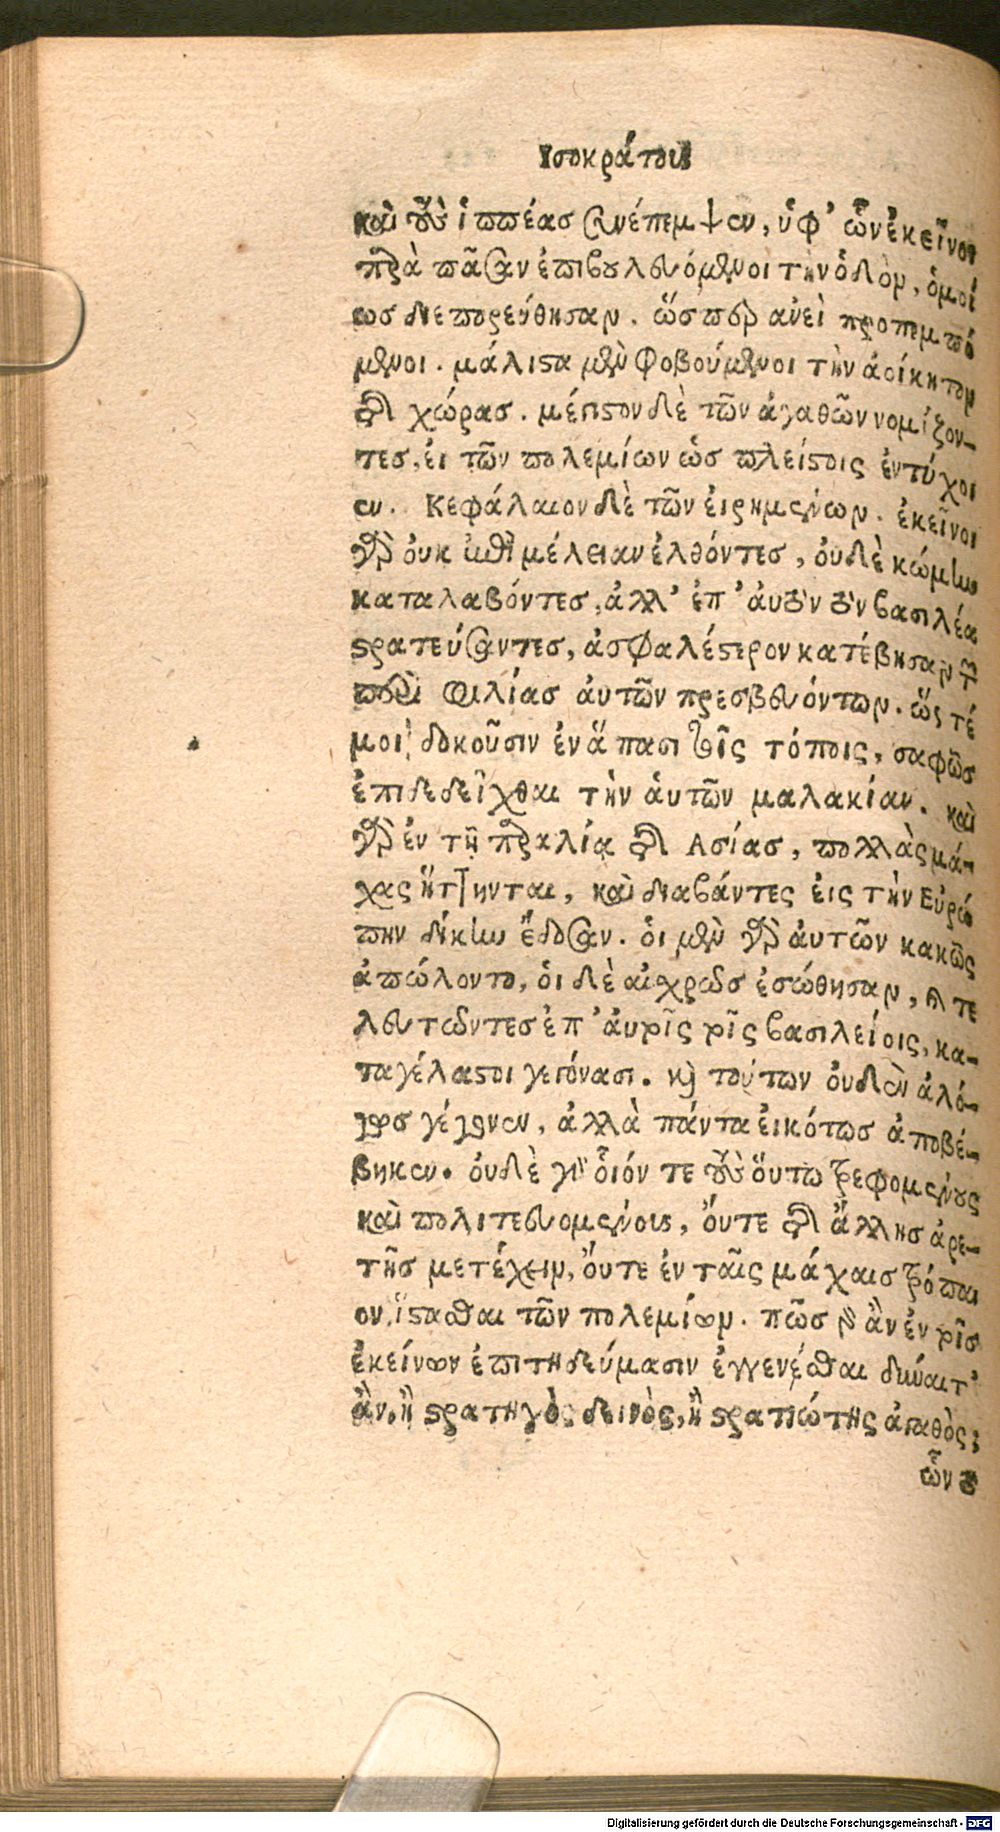 Ισοκράτους
καὶ τοὺς ἱππέας συνέπεμψεν, ὑφ' ὧν ἐκεῖνοι
παρὰ πᾶσαν ἐπιβουλευόμενοι τὴν ὁδὸν, ὁμοί
ως διεπορεύθησαν. ὥσπερ ανεὶ προπεμπό
μενοι. μάλιστα μὲν φοβούμενοι τὴν ἀοίκητον
τῆς χώρας. μέγιστον δὲ τῶν ἀγαθῶν νομίζον-
τες, ἐι τῶν πολεμίων ὡς πλείστοις ἐντύχοι
εν. Κεφάλαιον δὲ τῶν ἐιρημένων. ἐκεῖνοι
γὰρ ὀυκ ἐπὶ λείαν ἐλθόντες, ὀυδὲ κώμην
καταλαβόντες, ἀλλ' ἐπ' ἀυτὸν τὸν βασιλέα
στρατεύσαντες, ἀσφαλέστερον κατέβησαν τῶν
περὶ φιλίας ἀυτῶν πρεσβευόντων. ὥς τέ
μοι δοκοῦσιν ἐν ἅπασι τοῖς τόποις, σαφῶς
ἐπιδεδεῖχθαι τὴν ἁυτῶν μαλακίαν. καὶ
γὰρ ἐν τῇ παραλίᾳ τῆς Ασίας, πολλὰς μά-
χας ἥττηνται, καὶ διαβάντες ἐις τὴν Εὐρώ
πην δίκην ἔδοσαν. ὁι μὲν γὰρ ἀυτῶν κακῶς
ἀπώλοντο, ὁι δὲ αἰχρῶς ἐσώθησαν, καὶ τε
λευτῶντες ἐπ' ἀυτοῖς τοῖς βασιλείοις, κα-
ταγέλαστοι γεγόνασι. καὶ τούτων ὀυδὲν ἀλό-
γως γέγονεν, ἀλλὰ πάντα ἐικότως ἀποβέ-
βηκεν. ὀυδὲ γὰρ ὃιόν τε τοὺς ὅυτω τρεφομένους
καὶ πολιτευομένους, ὄυτε τῆς ἄλλης ἀρε-
τῆς μετέχειν, ὄυτε ἐν ταῖς μάχαις τρόπαι
ον ἵστασθαι τῶν πολεμίων. πῶς γὰρ ἂν ἐν τοῖς
ἐκείνων ἐπιτηδεύμασιν ἐγγενέσθαι δύναιτ'
ἂν, ἢ στρατηγὸς δεινὸς, ἢ στρατιώτης ἀγαθὸς;
ὧν τὸ
Digitalisierung gefördert durch die Deutsche Forschungsgemeinschaft - DFG